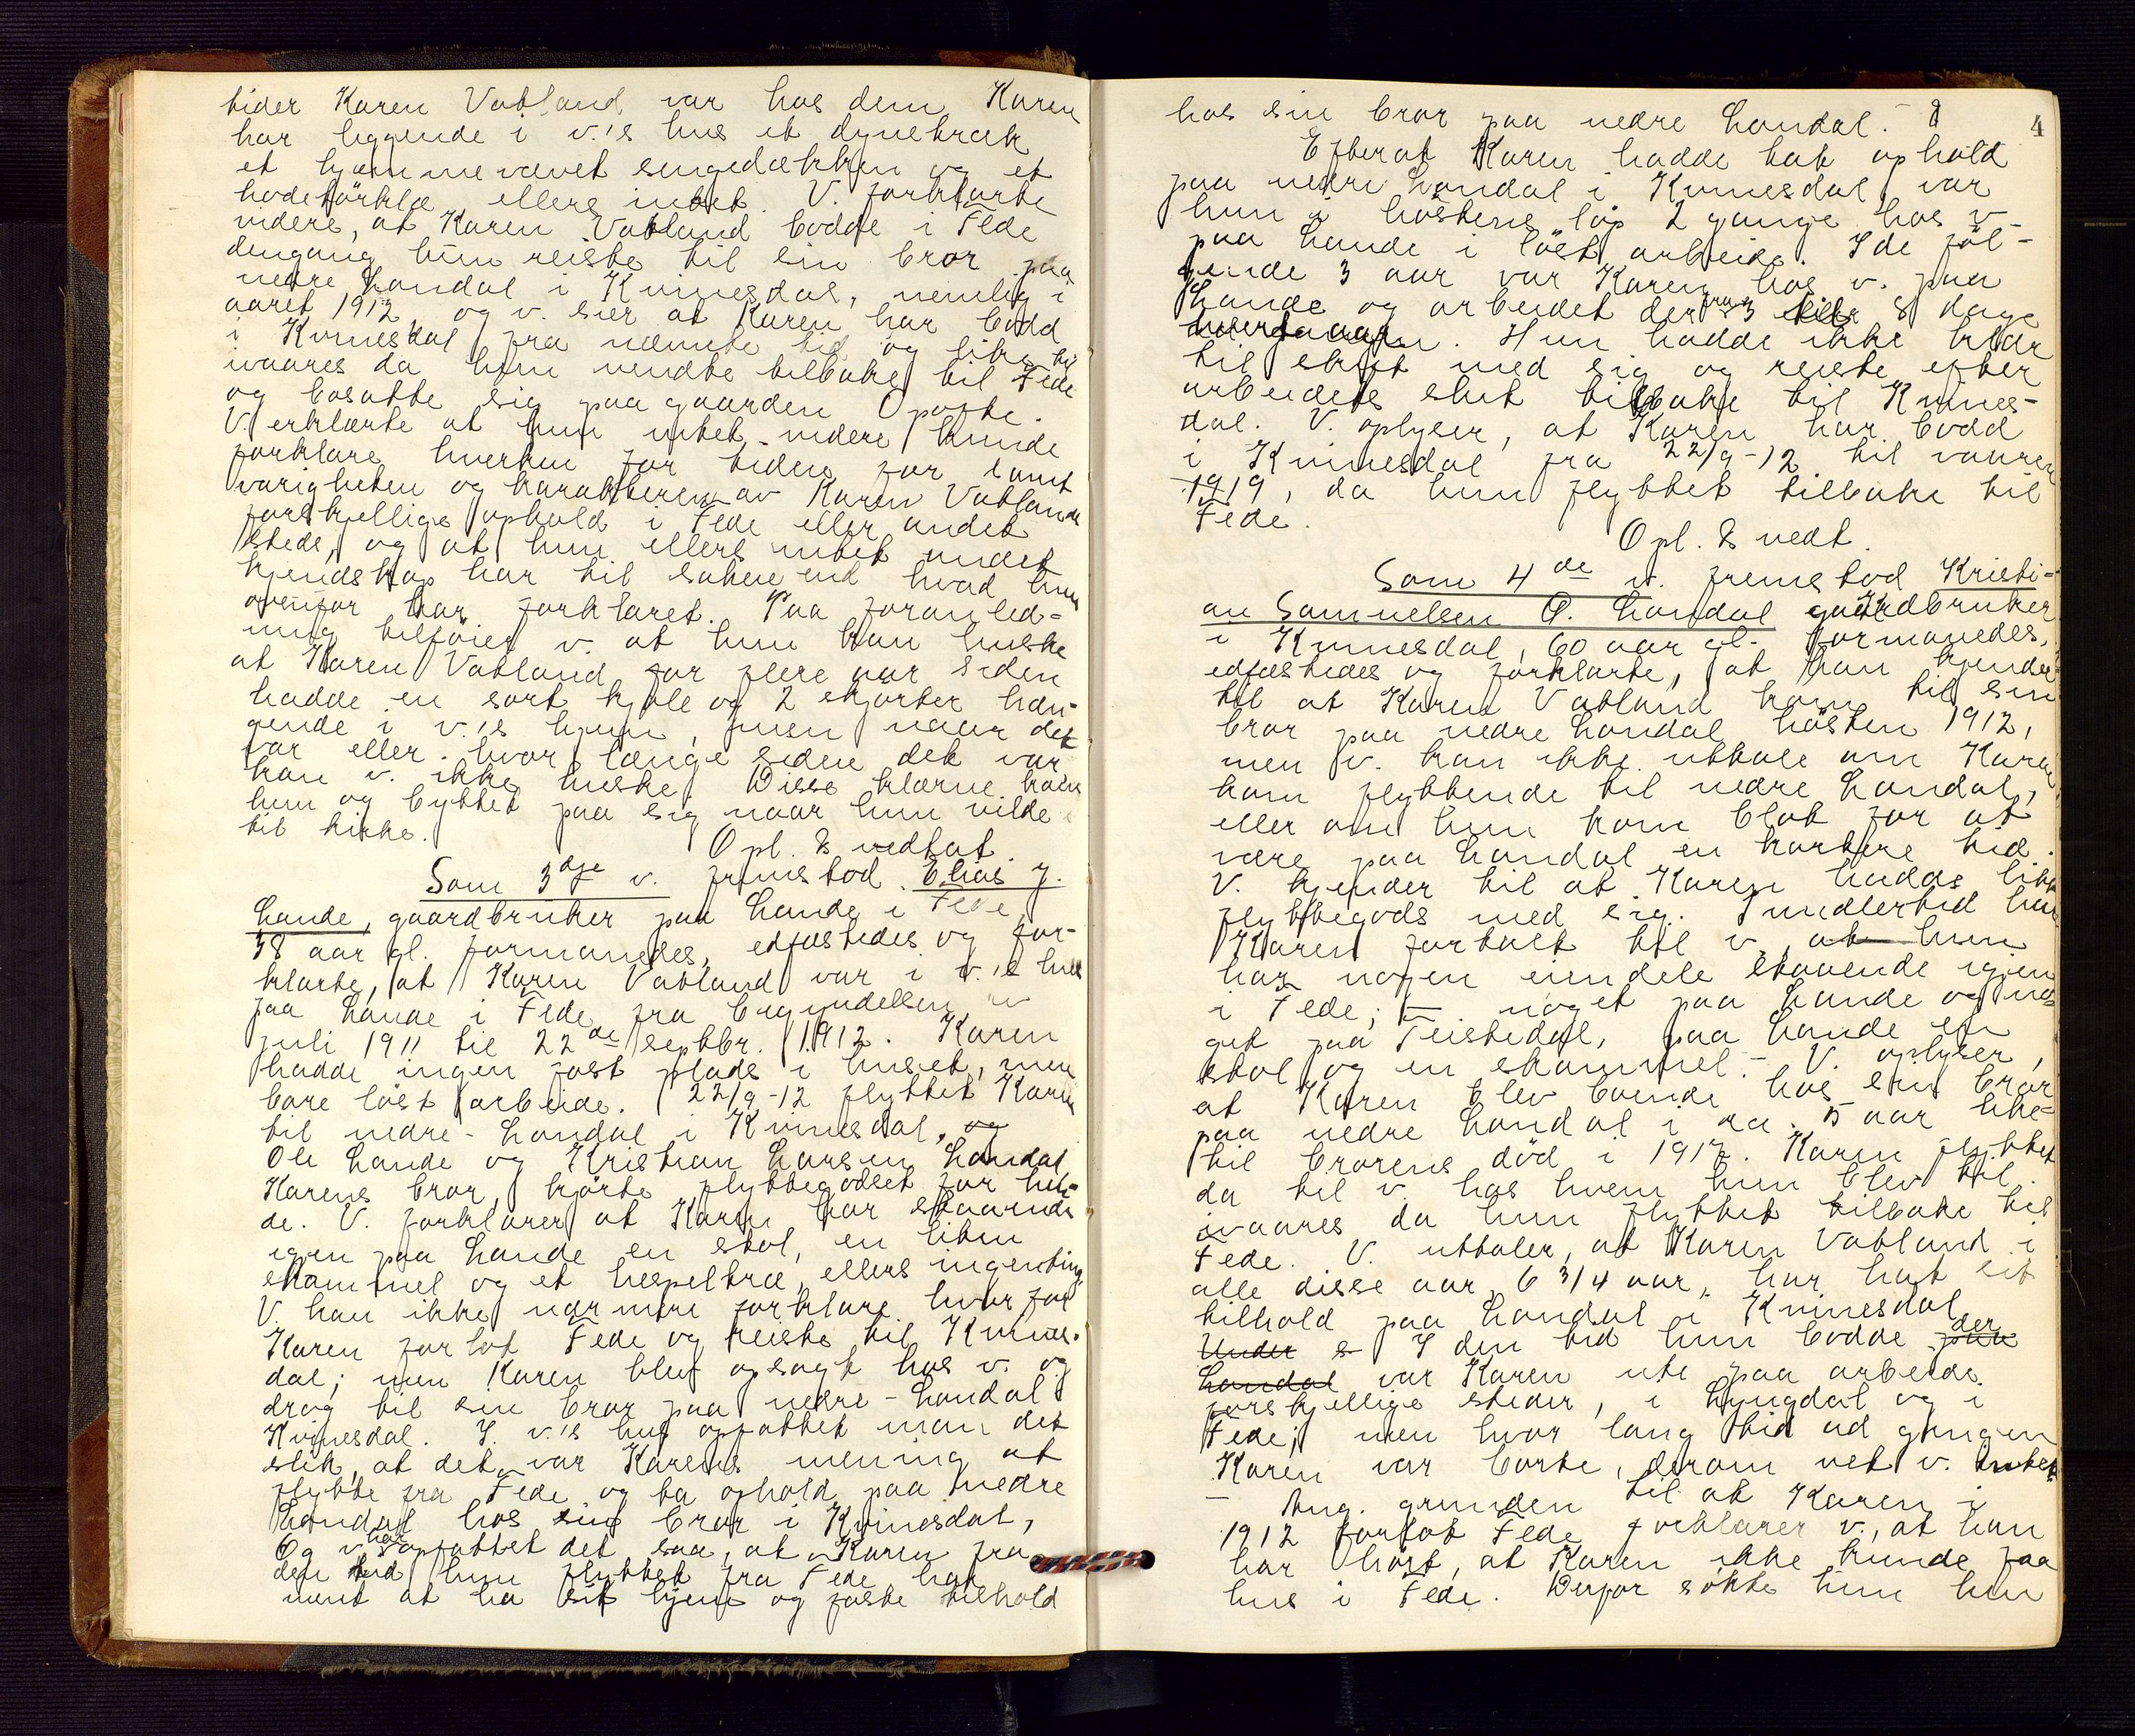 tider Karen Vatland var hos dem Karen
har liggende i v.'s hus et dynetræk
et hjemmevævet sengedækken og et
hodetörklæ, ellers intet. V. forklarte
videre, at Karen Vatland bodde i Fede
dengang hun reiste til sin bror paa
nedre Londal i Kvinesdal, nemlig i
aaret 1912, og v. sier at Karen har bodd
i Kvinesdal fra nævnte tid og like til
ivaares da hun vendte tilbake til Fede
og bosatte sig paa gaarden Opofte.
V. erklærte at hun intet videre kunde
forklare hverken for tiden for samt
varigheten og karakteren av Karen Vatlands
forskjellige ophold i Fede eller andet
steds, og at hun ellers intet andet
kjendskap har til saken end hvad hun
ovenfor har forklaret. Paa foranled-
ning tilföier v. at hun kan huske
at Karen Vatland for flere aar siden
hadde en sort kjole og 2 skjorter hæn-
gende i v.'s hjem, men naar det
var eller hvor længe siden det var
kan v. ikke huske. Disse klærne hadde
hun og byttet paa sig naar hun vilde
til kirke.
Opl. & vedtat.
Som 3dje v. fremstod Elias J.
Lande, gaardbruker paa Lande i Fede,
38 aar gl. formanedes, edfæstedes og for-
klarte, at Karen Vatland var i v.'s hus
paa Lande i Fede fra begyndelsen av
juli 1911 til 22de septbr. 1912. Karen
hadde ingen fast plads i huset, men
bare löst arbeide. 22/9-12 flyttet Karen
til nedre-Londal i Kvinesdal, og
Ole Lande og Kristian Larsen Londal,
Karens bror, kjörte flyttegodset for hen-
de. V. forklarer at Karen har staaende
igjen paa Lande en stol, en liten
skammel og et hespeltræ, ellers ingenting
V. kan ikke nærmere forklare hvorfor
Karen forlot Fede og reiste til Kvines-
dal; men Karen blev opsagt hos v. og
drog til sin bror paa nedre-Londal i
Kvinesdal. I v.'s hus opfattet man det
slik, at det var Karens mening at
flytte fra Fede og ta ophold paa nedre
Londal hos sin bror i Kvinesdal,
Og v. har opfattet det saa, at Karen fra
den tid hun flyttet fra Fede har
ment at ha sit hjem og faste tilhold
4
hos sin bror paa nedre Londal. -
Efterat Karen hadde tat ophold
paa nedre Londal i Kvinesdal var
hun i höstens löp 2 gange hos v.
paa Lande i löst arbeide. I de föl-
gende 3 aar var Karen hos v. paa
Lande og arbeidet der fra 3 til 8 dage
hver gang. Hun hadde ikke klær
til skift med sig og reiste efter
arbeidets slut tilbake til Kvines-
dal. V. oplyser, at Karen har bodd
i Kvinesdal fra 22/9-12 til vaaren
1919, da hun flyttet tilbake til
Fede.
Opl. & vedt.
Som 4de v. fremstod Kristi-
an Samuelsen Ö. Londal gaardbruker
i Kvinesdal, 60 aar gl. formanedes,
edfæstedes og forklarte, at han kjender
til at Karen Vatland kom til sin
bror paa nedre Londal hösten 1912,
men v. kan ikke uttale om Karen
kom flyttende til nedre Londal,
eller om hun kom blot for at
være paa Londal en kortere tid.
V. kjender til at Karen hadde litt
flyttegods med sig. Imidlertid har
Karen fortalt til v. at hun
har nogen eiendele staaende igjen
i Fede; - noget paa Lande og no-
get paa Teistedal, paa Lande en
stol og en skammel. - V. oplyser,
at Karen blev boende hos sin bror
paa nedre Londal i ca. 5 aar like
til brorens död i 1917. Karen flyttet
da til v. hos hvem hun blev til
ivaares da hun flyttet tilbake til
Fede. V. uttaler, at Karen Vatland i
alle disse aar, 6 3/4 aar, har hat sit
tilhold paa Londal i Kvinesdal
Under s I den tid hun bodde der paa
Londal var Karen ute paa arbeide
forskjellige steder, i Lyngdal og i
Fede; men hvor lang tid ad gangen
Karen var borte, derom vet v. intet
- Ang. grunden til at Karen i
1912 forlot Fede forklarer v., at han
har hört, at Karen ikke kunde faa
hus i Fede. Derfor sökte hun hen